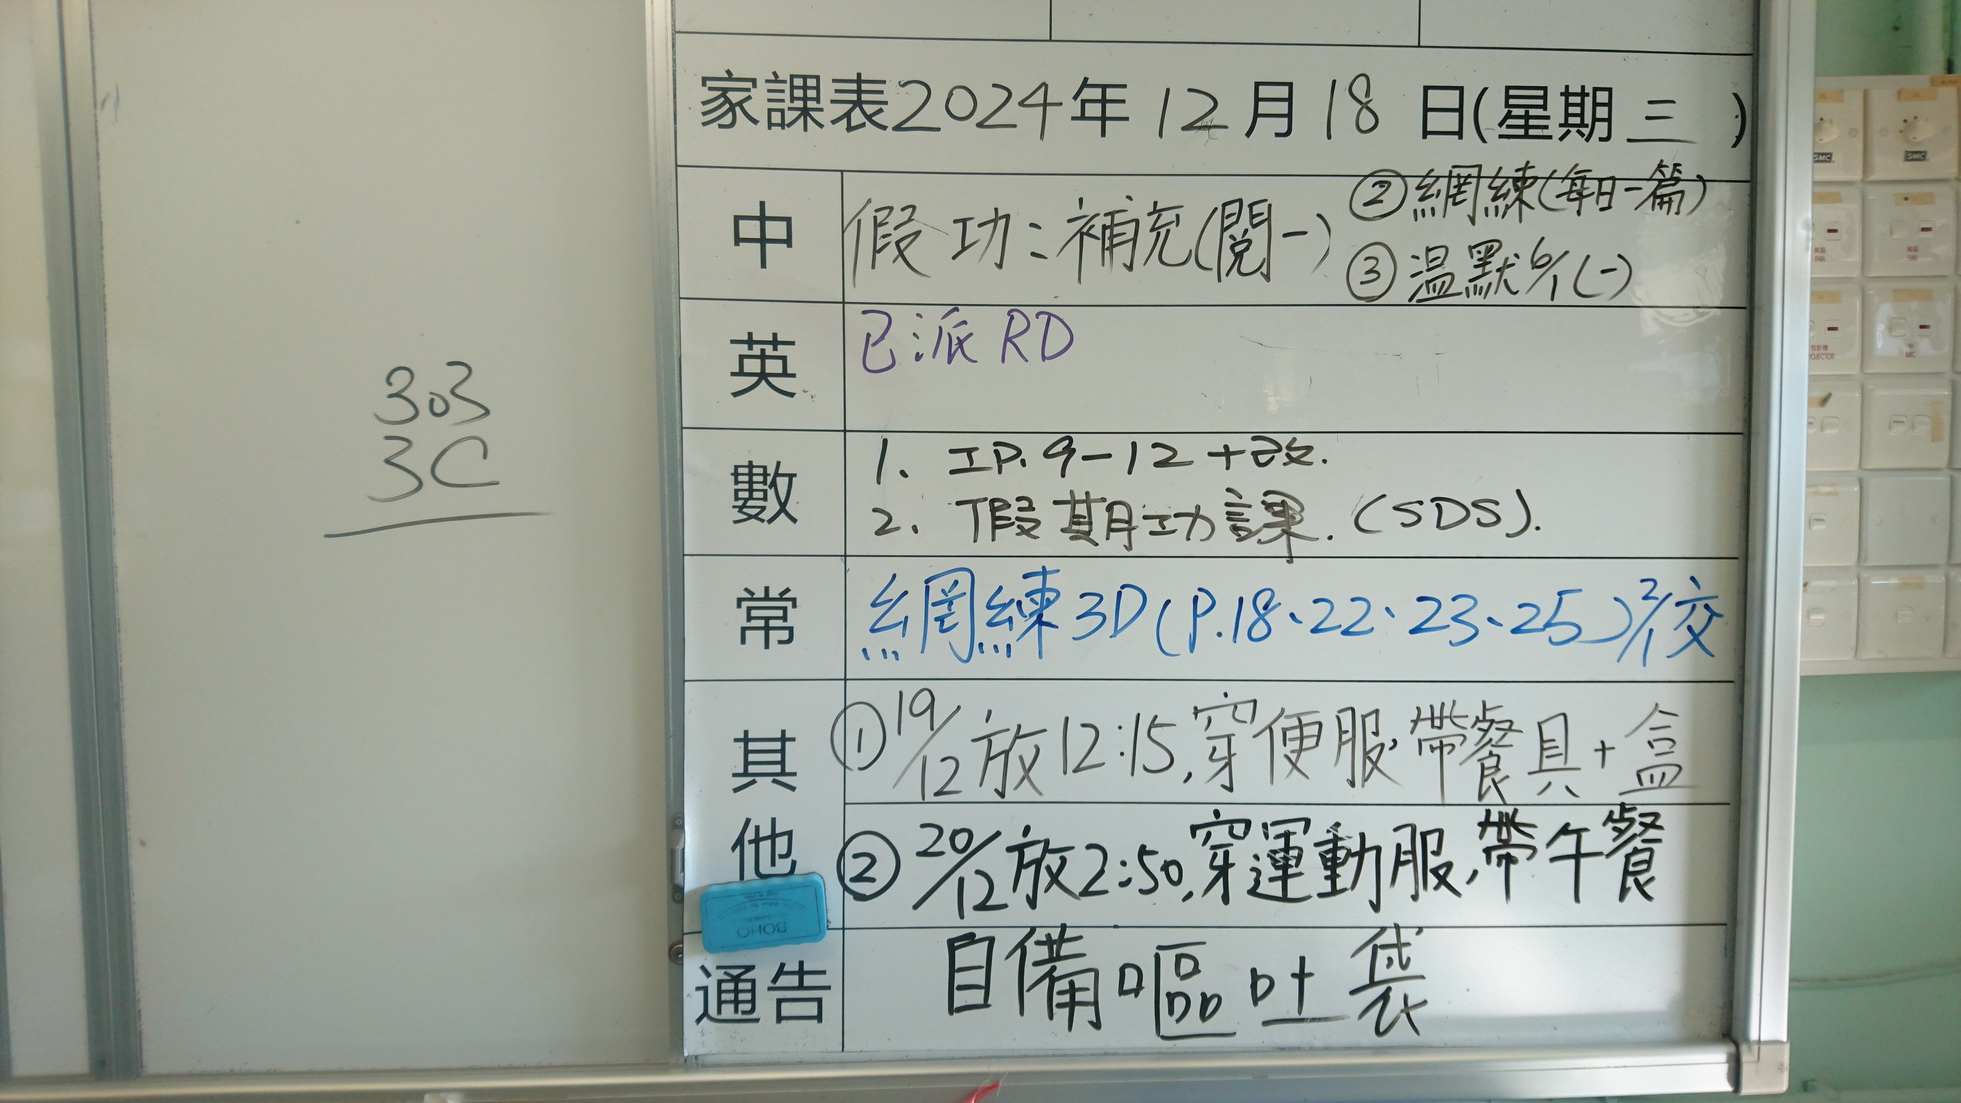 303
3C
家課表2024年12月18日(星期三)
中
假功：補充(閱一)
②網練(每日一篇)
③溫默6/1(一)
英
已派RD
數
1. 工P.9-12+改.
2. 假期功課. (SDS).
常
網練3D(P.18、22、23、25)2/1交
其他
①19/12放12:15,穿便服,帶餐具+盒
②20/12放2:50,穿運動服,帶午餐
通告
自備嘔吐袋
BOHO
SMC
SMC